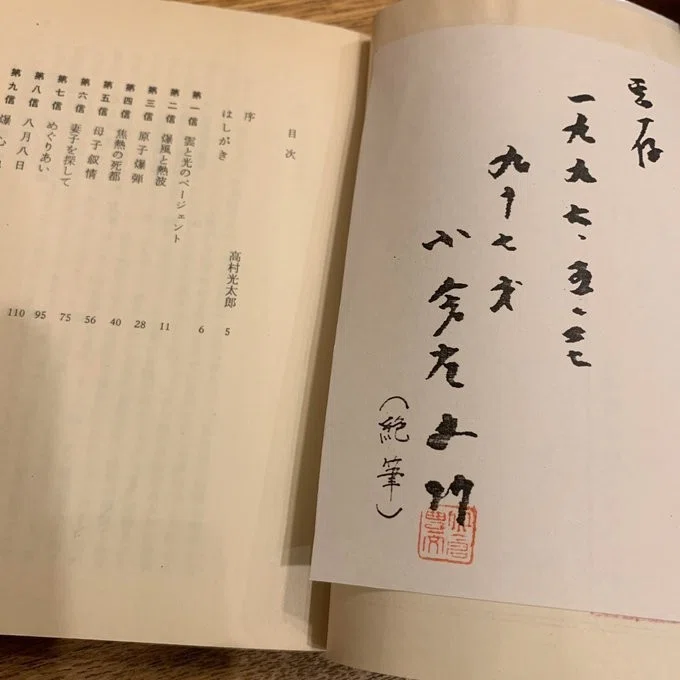 恵存
一九九六、五、二七
九十七才
小倉豊文
(絶筆)
目次
序 高村光太郎 5
はしがき 6
第一信 雲と光のページェント 11
第二信 爆風と熱波 28
第三信 原子爆弾 40
第四信 焦熱の死都 56
第五信 母子叙情 75
第六信 妻子を探して 95
第七信 めぐりあい 110
第八信 八月八日
第九信 爆心